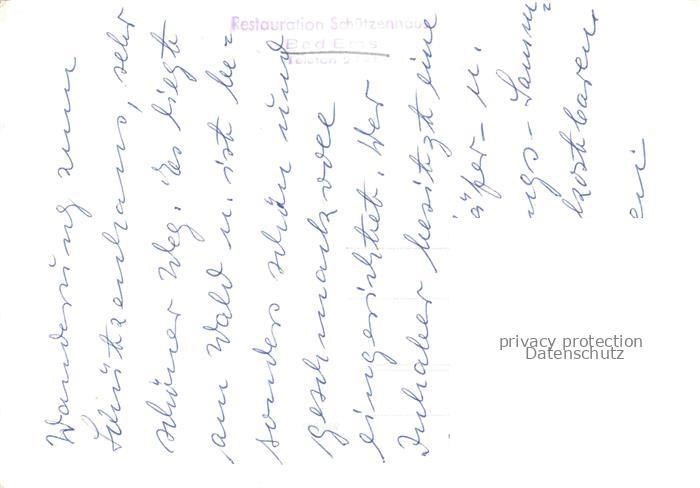 Restauration Schützenhaus
Bad Ems
Telefon
Wanderung zum
Schützenhaus, sehr
schöner Weg. Es liegt
am Wald u. ist be-
sonders schön und
geschmackvoll
eingerichtet. Der
Inhaber besitzt eine
äfer- u.
ngs-Samm
kostbaren
ein
privacy protection
Datenschutz